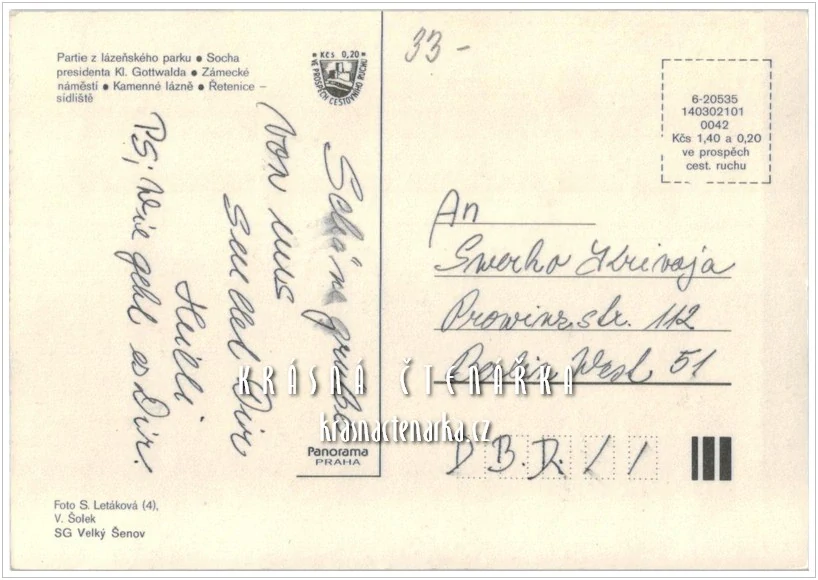 Partie z lázeňského parku ● Socha
presidenta Kl. Gottwalda ● Zámecké
náměstí ● Kamenné lázně ● Řetenice –
sídliště
Kčs 0,20
VE PROSPĚCH CESTOVNÍHO RUCHU
33-
6-20535
140302101
0042
Kčs 1,40 a 0,20
ve prospěch
cest. ruchu
Schöne grüße
von uns
sendet Dir
PS; Wie geht es Dir.
An
Swerho Krivaja
Prowinzstr. 112
Berlin West 51
D. B. D. / /
KRÁSNÁ ČTENÁŘKA
krasnactenarka.cz
Panorama
PRAHA
Foto S. Letáková (4),
V. Šolek
SG Velký Šenov